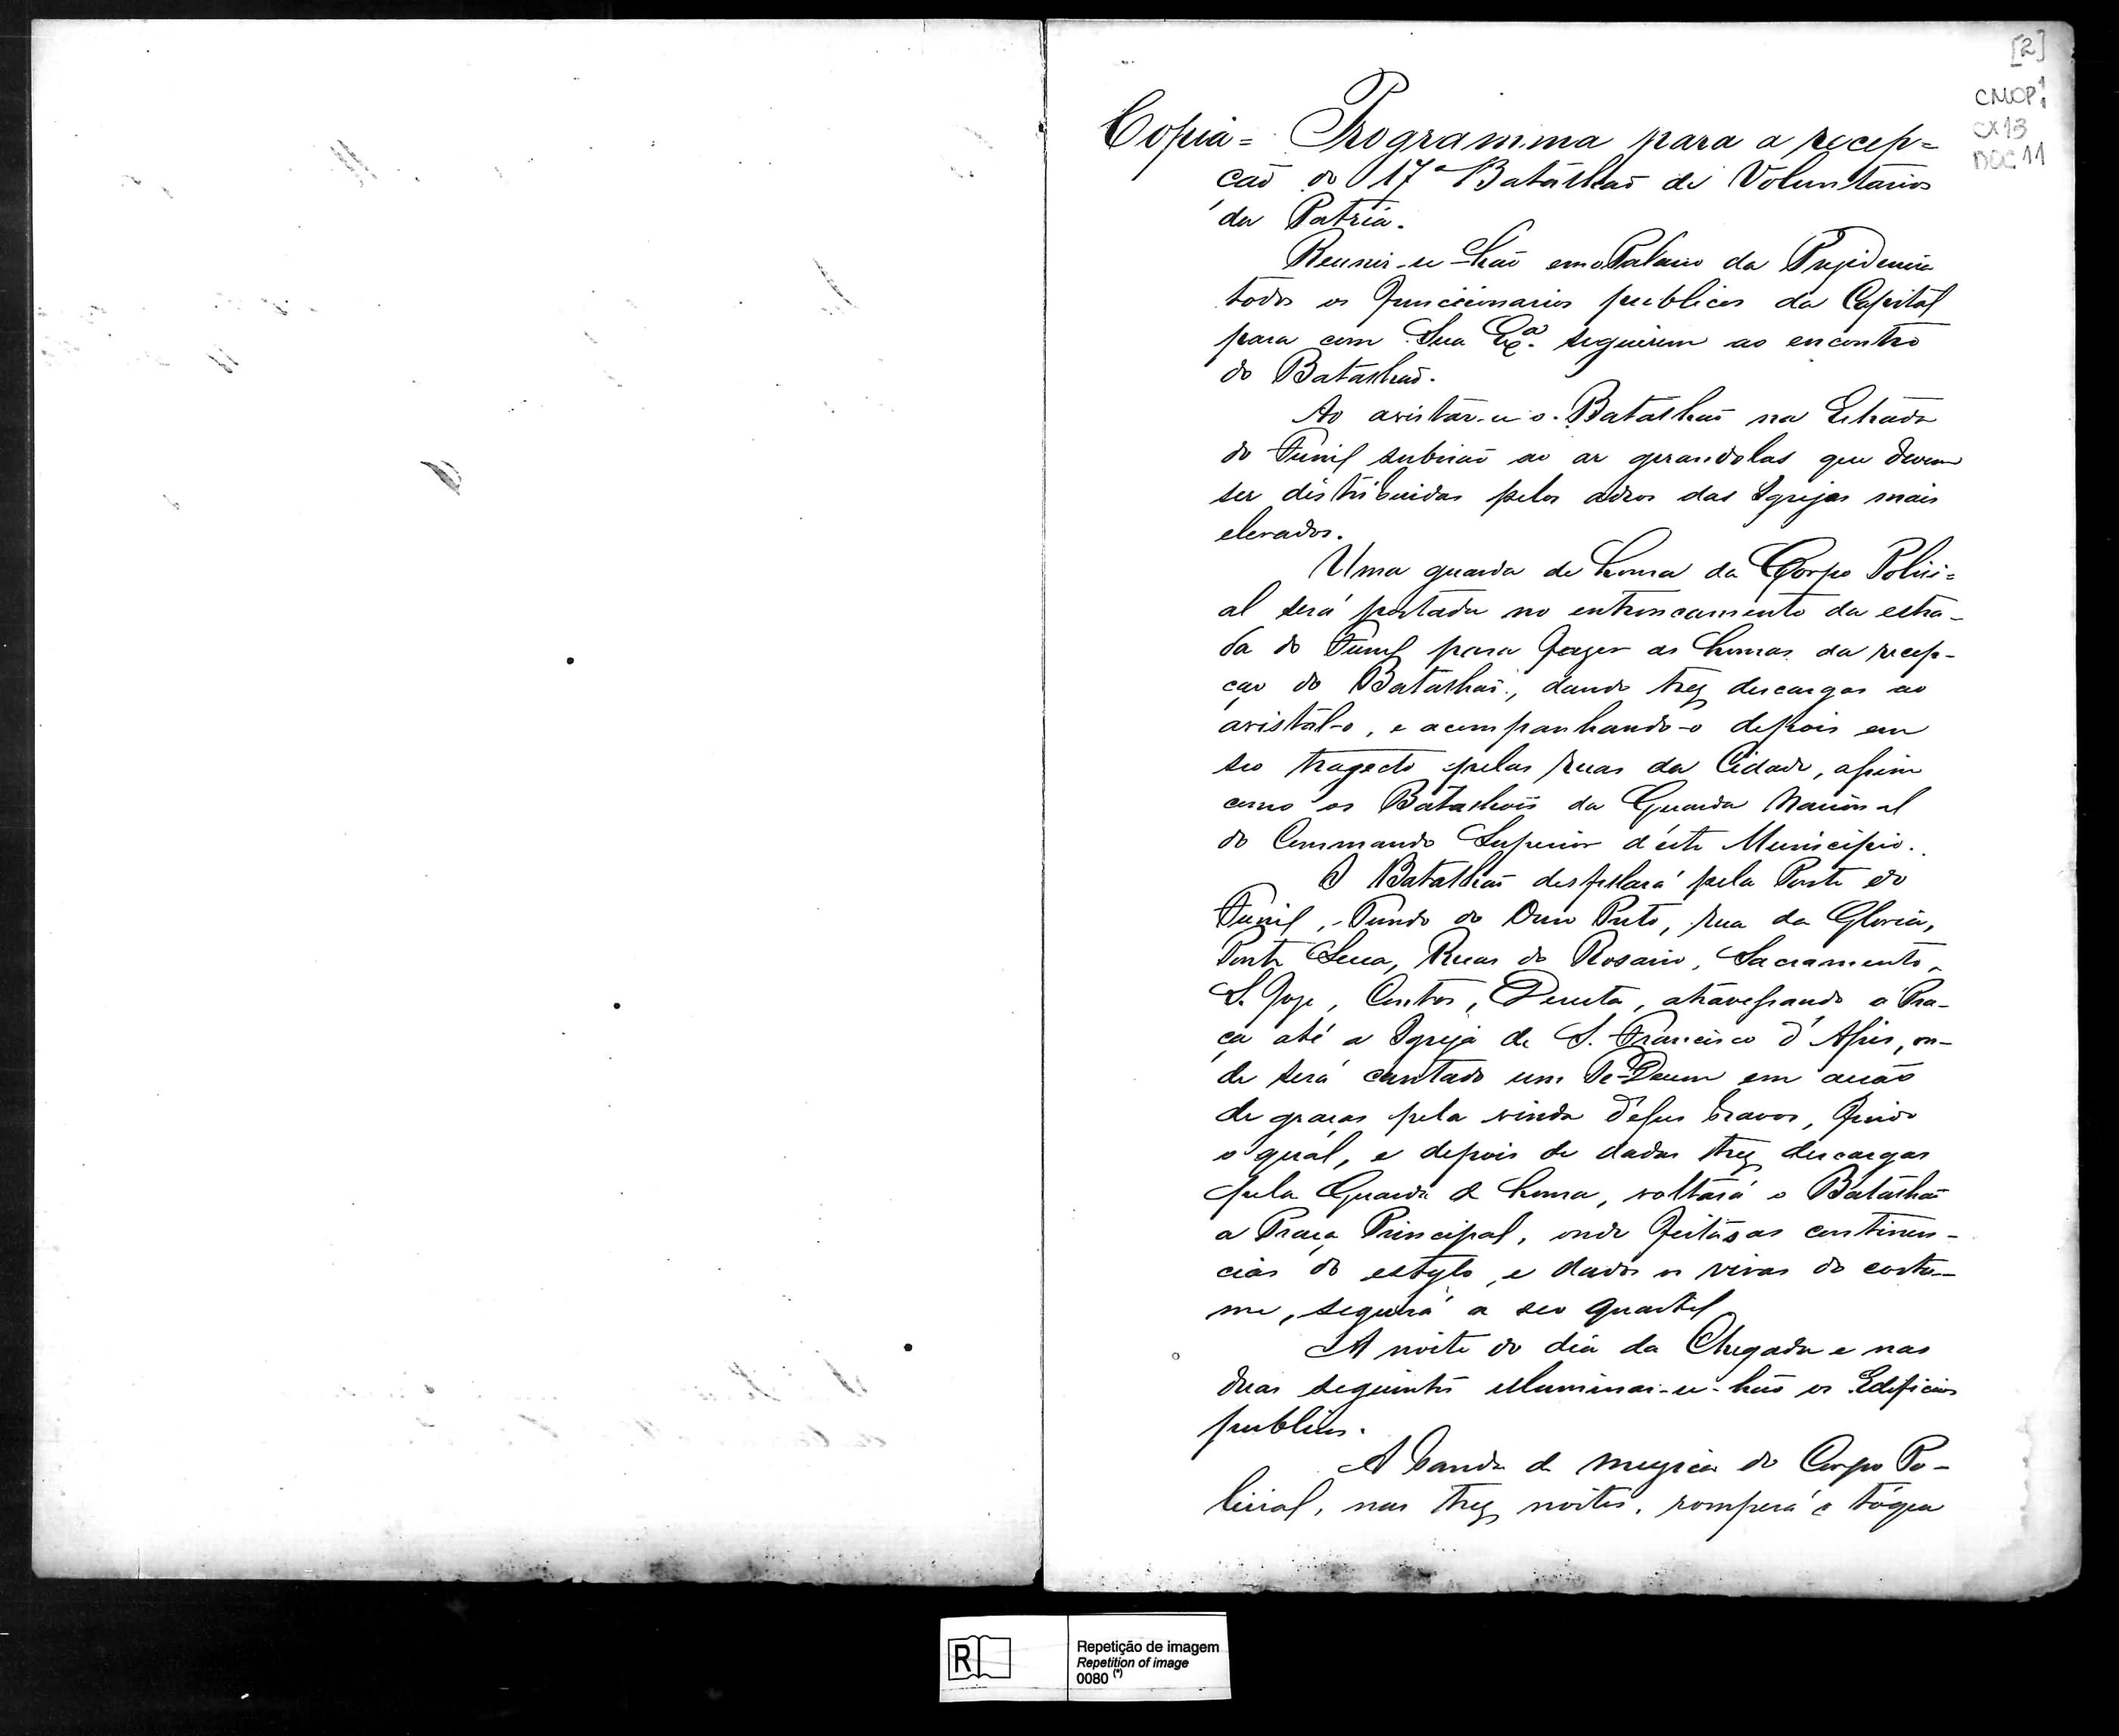 [2]
CMOP 1
CX 13
DOC 11
Copia = Programma para a recep=
ção do 17º Batalhaõ de Voluntarios
da Patria.
Reunir-se-haõ em o Palacio da Presidencia
todos os funccionarios publicos da Capital
para com Sua Exª. seguirem ao encontro
do Batalhaõ.
Ao avistar-se o Batalhaõ na Estrada
do Funil subiraõ ao ar girandolas que devem
ser distribuidas pelos adros das Igrejas mais
elevados.
Uma guarda de honra do Corpo Polici=
al será postada no entroncamento da estra-
da do Funil para fazer as honras da recep-
çao do Batalhaõ, dando trez descargas ao
avistal-o, e acompanhando-o depois em
seo tragecto pelas ruas da Cidade, assim
como os Batalhoẽs da Guarda Nacional
do Commando Superior d'este Municipio.
O Batalhaõ desfilará pela Ponte do
Funil, Fundo do Ouro Preto, rua da Gloria,
Ponte Secca, Ruas do Rosario, Sacramento,
S. Joze, Contos, Direita, atravessando a Pra-
ça até a Igreja de S. Francisco d'Assis, on-
de será cantado um Te-Deum em acção
de graças pela vinda d'esses bravos, findo
o qual, e depois de dadas trez descargas
pela Guarda de honra, voltará o Batalhaõ
a Praça Principal, onde feitas as continen-
cias do estylo, e dados os vivas do costu-
me, seguirá a seo quartel
A noite do dia da Chegada e nas
duas seguintes illuminar-se-haõ os Edificios
publicos.
A banda de muzica do Corpo Po-
licial, nas trez noites, romperá o tóque
R
Repetição de imagem
Repetition of image
0080 (*)